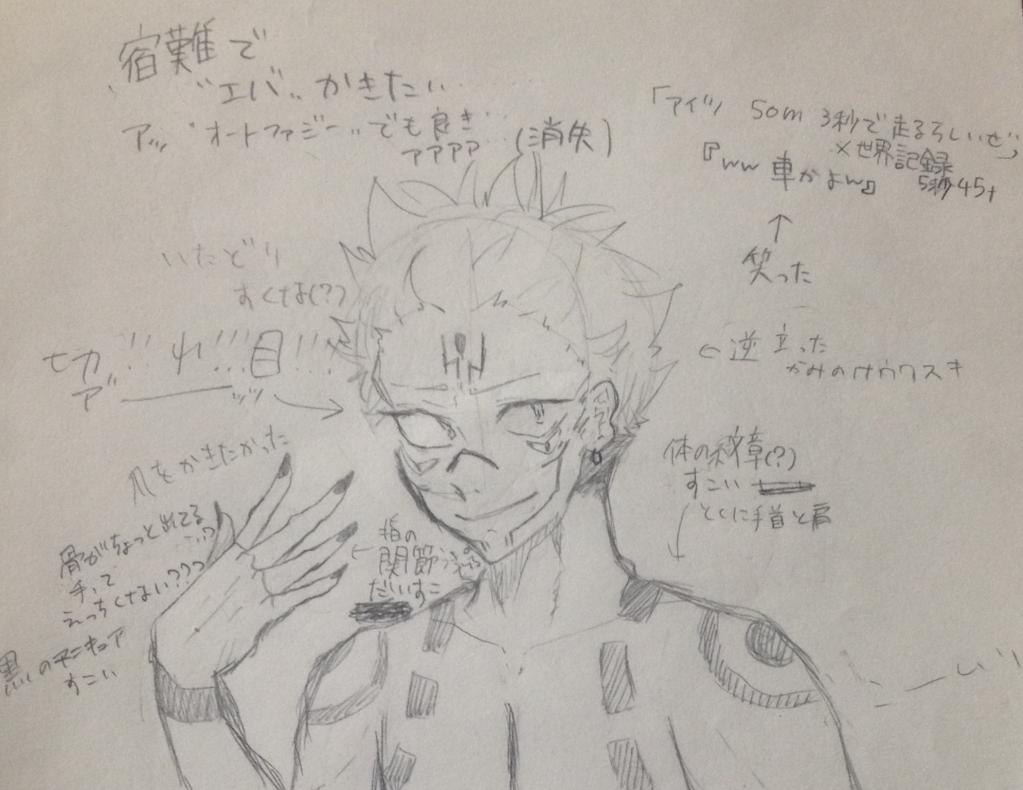 宿難で
"エバ" かきたい……
アッ "オートファジー" でも良き…
アアアア (消失)
「アイツ 50m 3秒で走るらしいぜ」
×世界記録
5秒45↑
『ww 車かよw』
↑
笑った
いたどり
すくな(??)
切!!れ!!!目!!!
ア゛――ッッ
←逆立った
かみのサウクスキ
爪をかきたかった
体の紋章(?)
すこい
とくに手首と肩
骨がちょっと出てる
手って
えっちくない???
←指の
関節
だいすこ
黒いのマニキュア
すこい